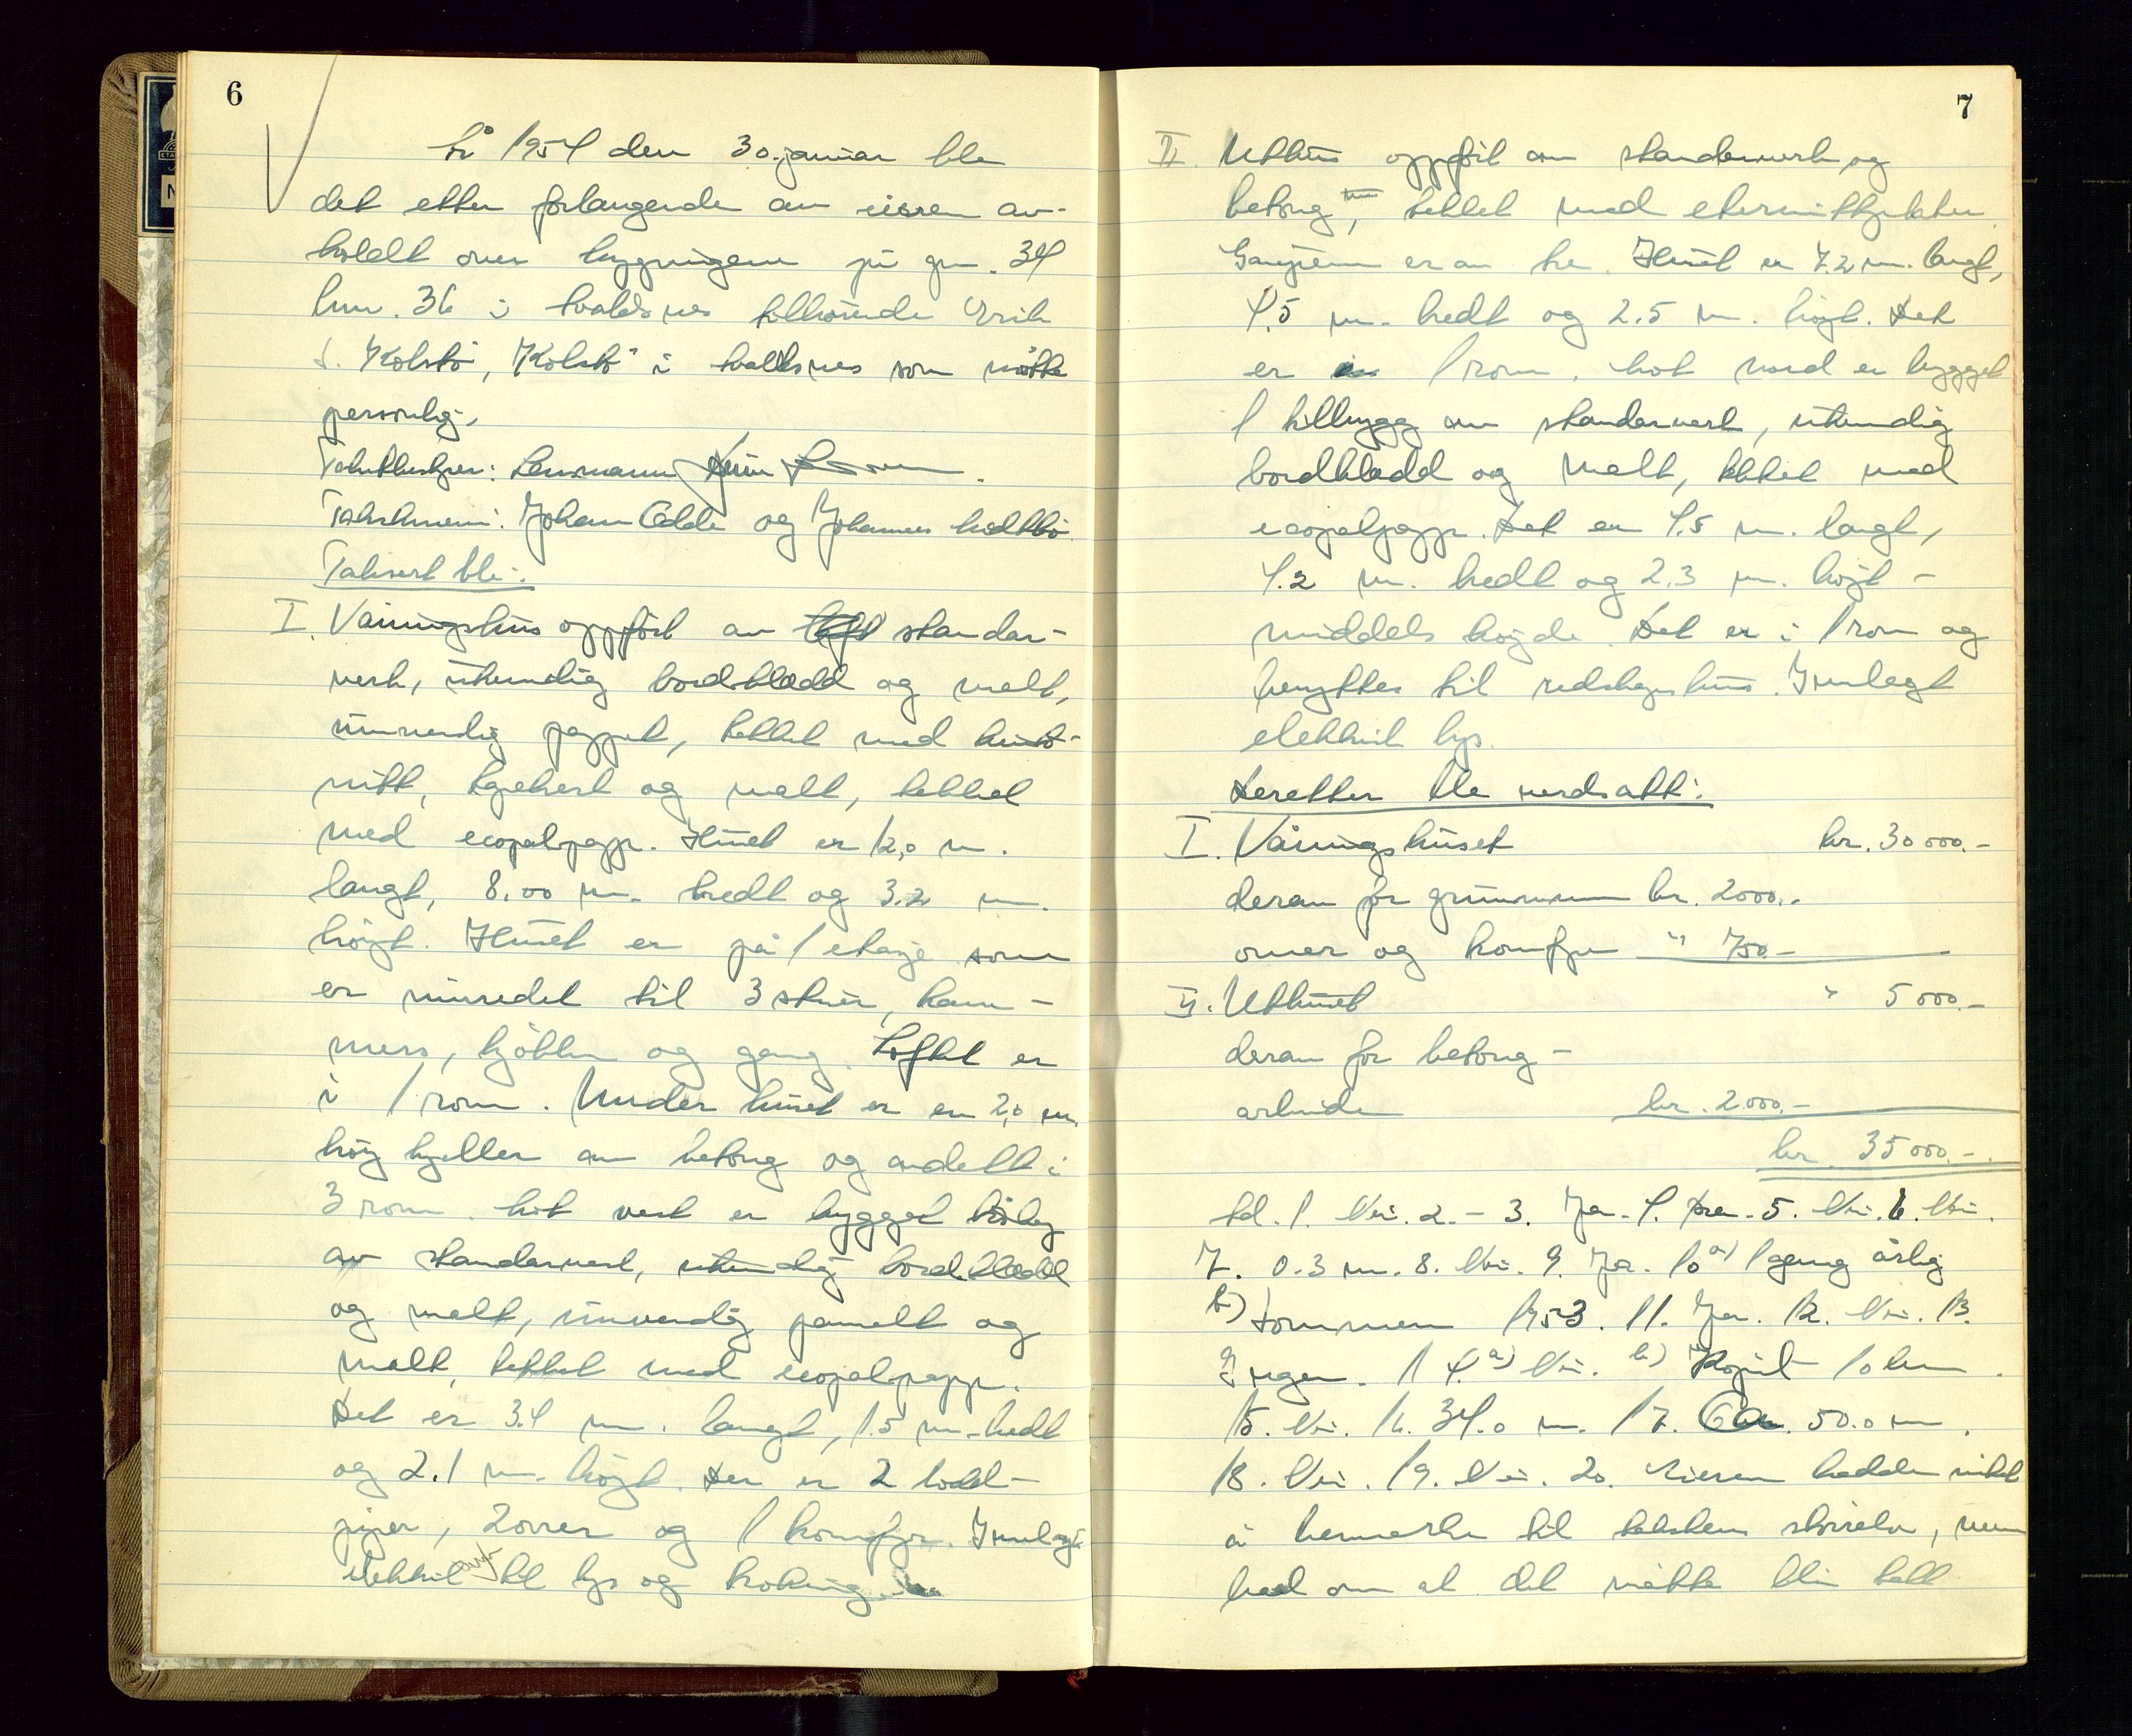 6
År 1954 den 30. januar ble
det etter forlangende av eieren av-
holdt over bygningene på gnr. 34
bnr. 36 i Avaldsnes tilhørende Erik
S. Kolstø, Kolstø i Avaldsnes som møtte
personlig.
Takstbestyrer: Lensmann
Takstmenn: Johan Odde og Johannes
Taksert ble:
I. Våningshus oppført av standar-
verk, utvendig bordkledd og malt,
innvendig pappet, trukket med hunto-
nitt, tapetsert og malt, tekket
med ecopalpapp. Huset er 12,0 m.
langt, 8.00 m. bredt og 3.2 m.
høyt. Huset er på 1 etasje som
er innredet til 3 stuer, kam-
mers, kjøkken og gang. Loftet er
i 1 rom. Under huset er en 2,0 m.
høy kjeller av betong og avdelt i
3 rom. Mot vest er bygget bislag
av standarverk, utvendig bordkledd
og malt, innvendig panelt og
malt, tekket med ecopalpapp.
Det er 3.4 m. langt, 1.5 m. bredt
og 2.1 m. høyt. Der er 2 lodd-
piper, 2 ovner og 1 komfyr. Innlagt
elektrisk til lys og koking.
7
II. Uthus oppført av standerverk og
betong, tekket med eternittplater.
Gavlene er av tre. Huset er 7.2 m. langt,
4.5 m. bredt og 2.5 m. høyt. Det
er i 1 rom. Mot nord er bygget
1 tilbygg av standarverk, utvendig
bordkledd og malt, tekket med
ecopalpapp. Det er 4.5 m. langt,
4.2 m. bredt og 2.3 m. høyt -
middels høyde. Det er i 1 rom og
benyttes til redskapshus. Innlagt
elektrisk lys.
Deretter ble verdsatt:
I. Våningshuset kr. 30 000.-
derav for grunnmur kr. 2000.-
ovner og komfyr " 750.-
II. Uthuset " 5 000.-
derav for betong-
arbeide kr. 2.000.-
kr. 35 000.-
Ad. 1. Nei. 2. - 3. Ja. 4. Bra. 5. Nei. 6. Nei.
7. 0.3 m. 8. Nei. 9. Ja. 10 a) 1 gang årlig
b) Sommeren 1953. 11. Ja. 12. Nei. 13.
Ingen. 14. a) Nei. b) Kopervik 10 km.
15. Nei. 16. 34.0 m. 17. Ca. 50.0 m.
18. Nei. 19. Nei. 20. Eieren hadde intet
å bemerke til takstens størrelse, men
bad om at det måtte bli tatt